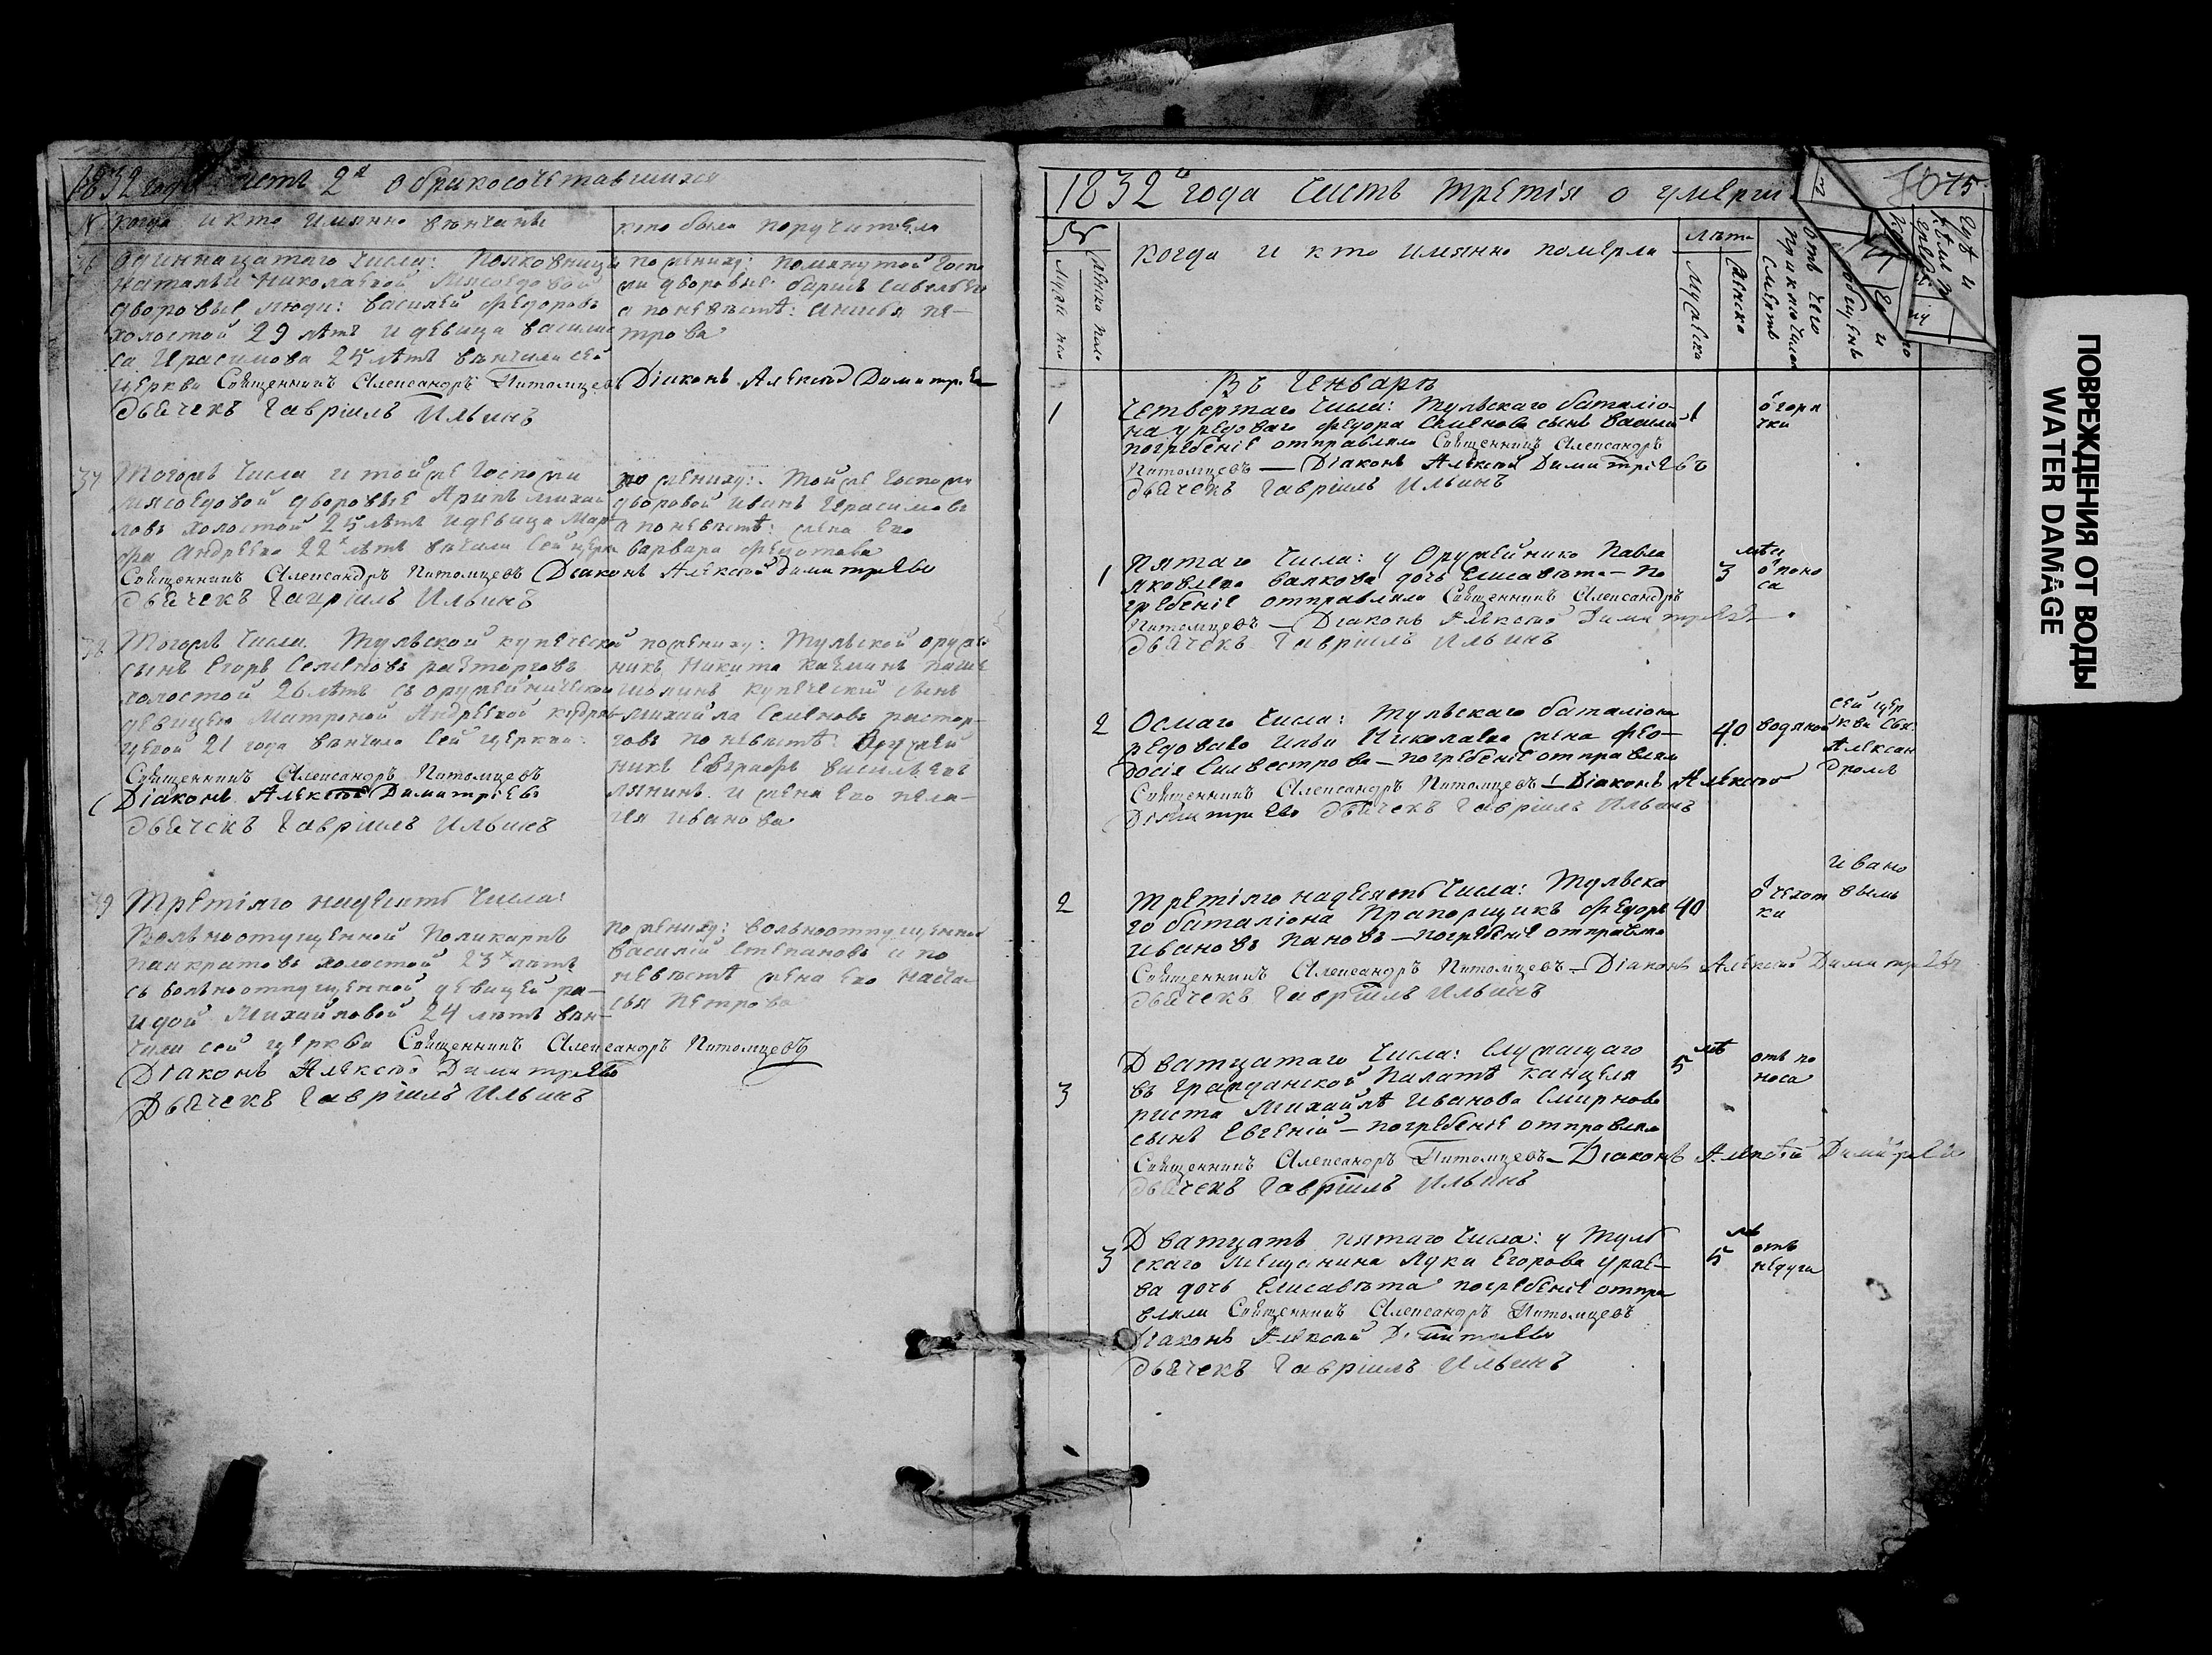 1832 года часть 2я о бракосочетавшихся
N когда и кто имянно венчаны
кто были поручители
Одиннацатаго числа: Полковницы
Натальи Николаевой Мясоедовой
дворовые люди: василей Федоровъ
холостой 29 летъ и девица васили
са Герасимова 25 летъ венчали сей
церкви Священникъ Александръ Питомцевъ
дьячекъ Гавріилъ Ильинъ
по жениху: помянутой Госпо
жи дворовые борисъ савельевъ
а по невесте: анисья пе-
трова
Діаконъ Алексей Димитріевъ
37 Тогожъ числа и тойже Госпожи
Мясоедовой дворовые Архипъ михай
ловъ холостой 25 летъ и девица Мар
фа Андреева 22х летъ венчали сей церкви
Священникъ Александръ Питомцевъ Діаконъ Алексей Димитріевъ
дьячекъ Гавріилъ Ильинъ
по жениху: Тойже Госпожи
дворовой иванъ Герасимовъ
а по невесте: жена его
варвара Федотова
38 Тогожъ числа. Тульской купеческой
сынъ Егоръ Семеновъ расторговъ
холостой 26 летъ съ оружейнической
девицею Матроной Андреевой
цевой 21 года венчали сей церкви:
Священникъ Александръ Питомцевъ
Діаконъ Алексей Димитріевъ
дьячекъ Гавріилъ Ильинъ
по жениху: Тульской оружей
никъ Никита
купеческій сынъ
михайла Семеновъ растор-
говъ по невесте: Оружей
никъ Евграфъ васильевъ
и жена его пела-
гея иванова
39 Третіяго надесять числа:
Вольноотпущенной Поликарпъ
панкратовъ холостой 23х летъ
съ вольноотпущенной девицей ра-
идой Михайловой 24 летъ вен-
чили сей церкви Священникъ Александръ Питомцевъ
Діаконъ Алексей Димитріевъ
Дьячекъ Гавріилъ Ильинъ
по жениху: вольноотпущенной
василій Степановъ и по
невесте жена его
Петрова
1832го года часть третія о умерши
75
когда и кто имянно померли
лета
Мужеска
Женска
отъ чего приключилась смерть
Въ Генваре
1 Четвертаго числа: Тульскаго баталіо-
на рядоваго Федора Семенова сынъ василій 1 о горя
чки
погребеніе отправляли Священникъ Александръ
Питомцевъ — Діаконъ Алексей Димитріевъ
дьячекъ Гавріилъ Ильинъ
1 Пятаго числа: у Оружейника Павла
яковлева валкова дочь Елисавета — по 3 о поно
са
гребеніе отправляли Священникъ Александръ
Питомцевъ — Діаконъ Алексей Димитріевъ
дьячекъ Гавріилъ Ильинъ
2 Осмаго числа: Тульскаго баталіона
рядоваго ильи Николаева жена Фео- 40 водяной
досія Силвестрова — погребеніе отправляли
Священникъ Александръ Питомцевъ — Діаконъ Алексей
Димитріевъ дьячекъ Гавріилъ Ильинъ
сей цер
кви
Алексан
дромъ
2 Третіяго надесять числа: Тульска
го баталіона Прапорщикъ Федоръ 40 о чехот
ки
ивановъ пановъ — погребеніе отправляли
Священникъ Александръ Питомцевъ — Діаконъ Алексей Димитріевъ
дьячекъ Гавріилъ Ильинъ
ивано
вымъ
3 Дватцатаго числа: Служащаго 5 отъ по
носа
въ гражданской Палате канцеля
риста Михайлы иванова Смирнова
сынъ Евгеній — погребеніе отправляли
Священникъ Александръ Питомцевъ — Діаконъ Алексей Димитріевъ
дьячекъ Гавріилъ Ильинъ
3 Дватцать пятаго числа: у Туль
скаго мещанина Луки Егорова 5 отъ
недуга
ва дочь Елисавета погребеніе отпра
вляли Священникъ Александръ Питомцевъ
Діаконъ Алексей Димитріевъ
дьячекъ Гавріилъ Ильинъ
ПОВРЕЖДЕНИЯ ОТ ВОДЫ
WATER DAMAGE